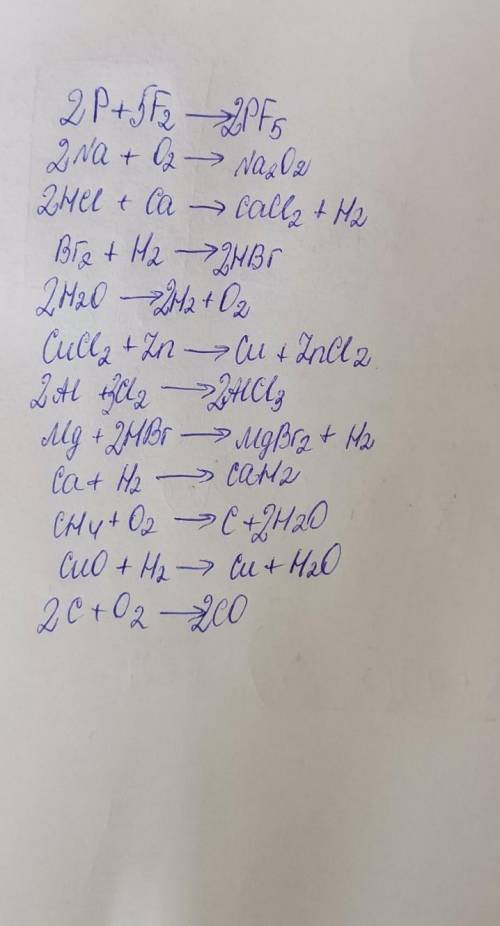 2P + 5F₂ → 2PF₅
2Na + O₂ → Na₂O₂
2HCl + Ca → CaCl₂ + H₂
Br₂ + H₂ → 2HBr
2H₂O → 2H₂ + O₂
CuCl₂ + Zn → Cu + ZnCl₂
2Al + 3Cl₂ → 2AlCl₃
Mg + 2HBr → MgBr₂ + H₂
Ca + H₂ → CaH₂
CH₄ + O₂ → C + 2H₂O
CuO + H₂ → Cu + H₂O
2C + O₂ → 2CO